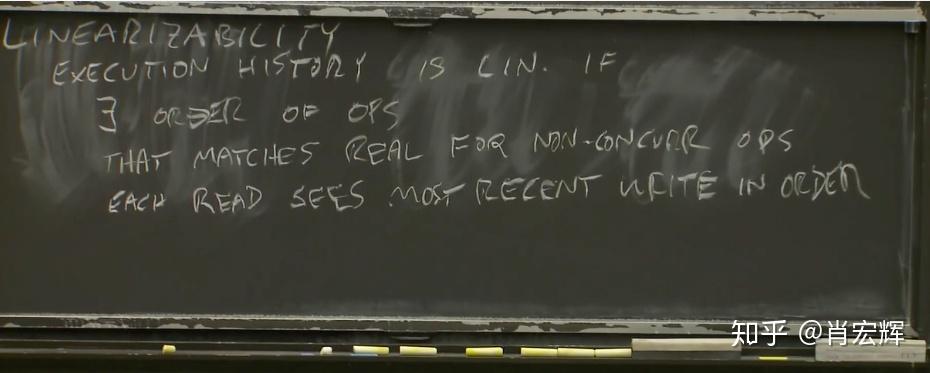 LINEARIZABILITY
EXECUTION HISTORY IS LIN. IF
∃ ORDER OF OPS
THAT MATCHES REAL FOR NON-CONCURR OPS
EACH READ SEES MOST RECENT WRITE IN ORDER
知乎 @肖宏辉